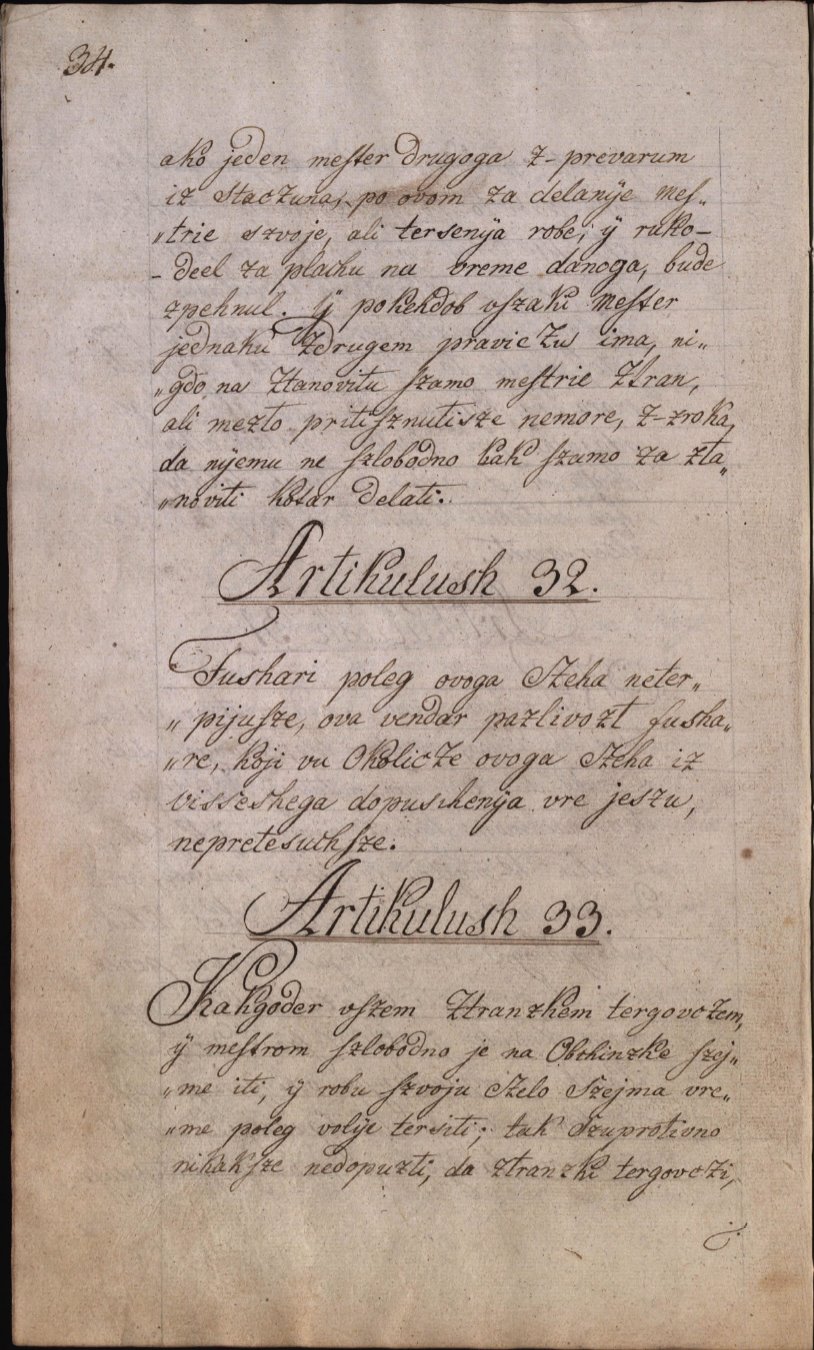 34.
ako jeden mester drugoga z-prevarum
iz staczuna, po ovom za delanÿe Mes„
„trie szvoje, ali tersenÿa robe, ÿ ruko-
-deel za plachu na vreme danoga, bude
zpehnul. Ÿ pokehdob vszaki Mester
jednaku zdrugem praviczu ima, ni„
„gdo na ztanovitu szamo mestrie ztran,
ali mezto pritisznutisze nemore, z-zroka,
da nÿemu ne szlobodno tak szamo za zta„
„noviti kotar delati.
Artikulush 32.
Fushari poleg ovoga Czeha neter„
„pijusze, ova vendar pazlivozt fusha„
„re, koji vu Okolicze ovoga Czeha iz
visseshega dopuschenÿa vre jeszu,
nepretesuchsze.
Artikulush 33.
Kakgoder vszem ztranzkem tergovczem,
ÿ mestrom szlobodno je na Obchinzke szej„
„me iti, ÿ robu szvoju czelo szejma vre„
„me poleg volÿe tersiti; tak szuprotivno
nikaksze nedopuzti, da ztranzki tergovczi,